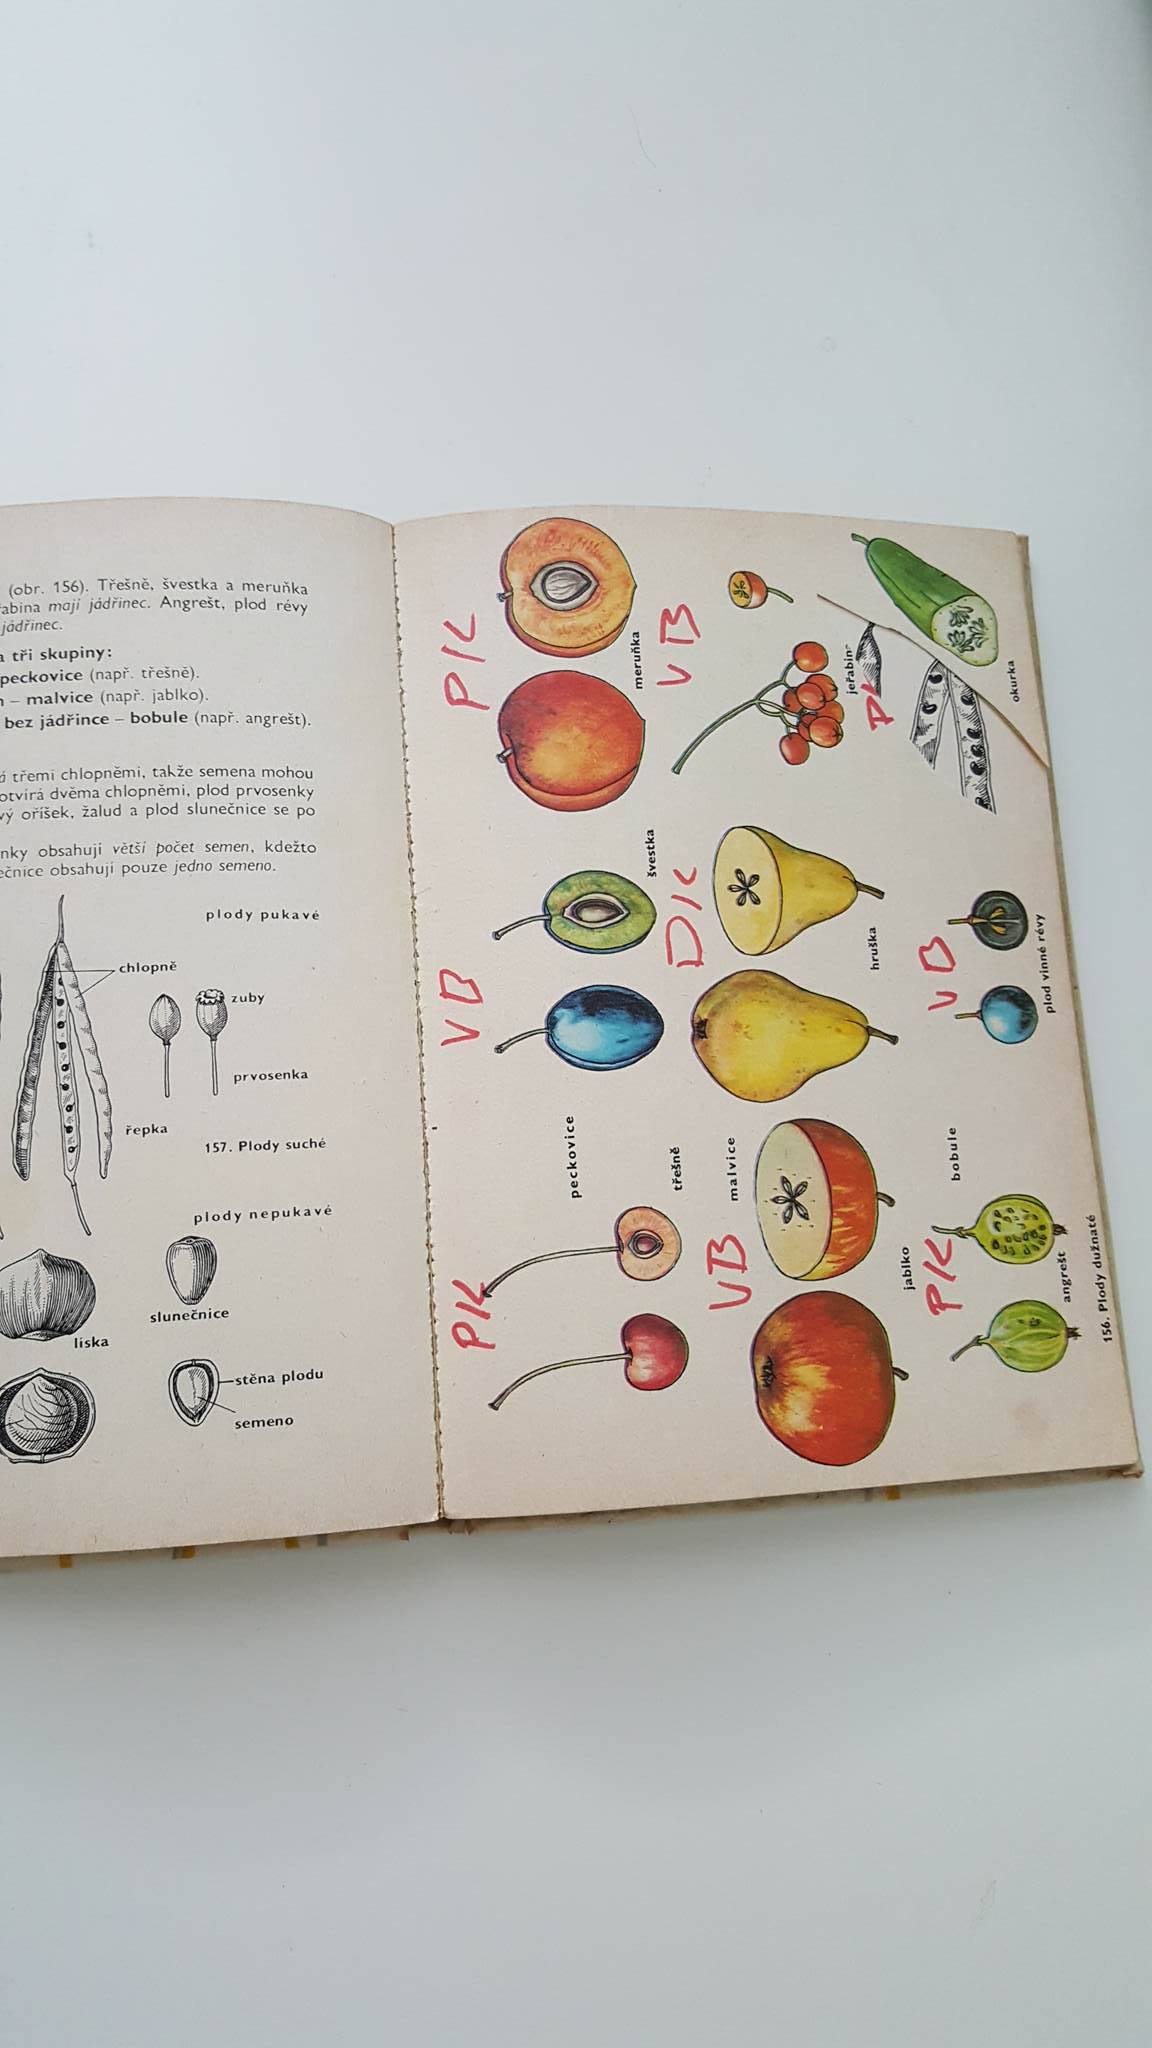 (obr. 156). Třešně, švestka a meruňka
mají jádřinec. Angrešt, plod révy
jádřinec.
tři skupiny:
peckovice (např. třešně).
– malvice (např. jablko).
bez jádřince – bobule (např. angrešt).
třemi chlopněmi, takže semena mohou
otvírá dvěma chlopněmi, plod prvosenky
oříšek, žalud a plod slunečnice se po
obsahují větší počet semen, kdežto
obsahují pouze jedno semeno.
plody pukavé
chlopně
zuby
prvosenka
řepka
157. Plody suché
plody nepukavé
slunečnice
líska
stěna plodu
semeno
PK
VB
PK
peckovice
třešně
švestka
meruňka
VB
DK
VB
malvice
jablko
hruška
PK
VB
bobule
angrešt
plod vinné révy
okurka
156. Plody dužnaté